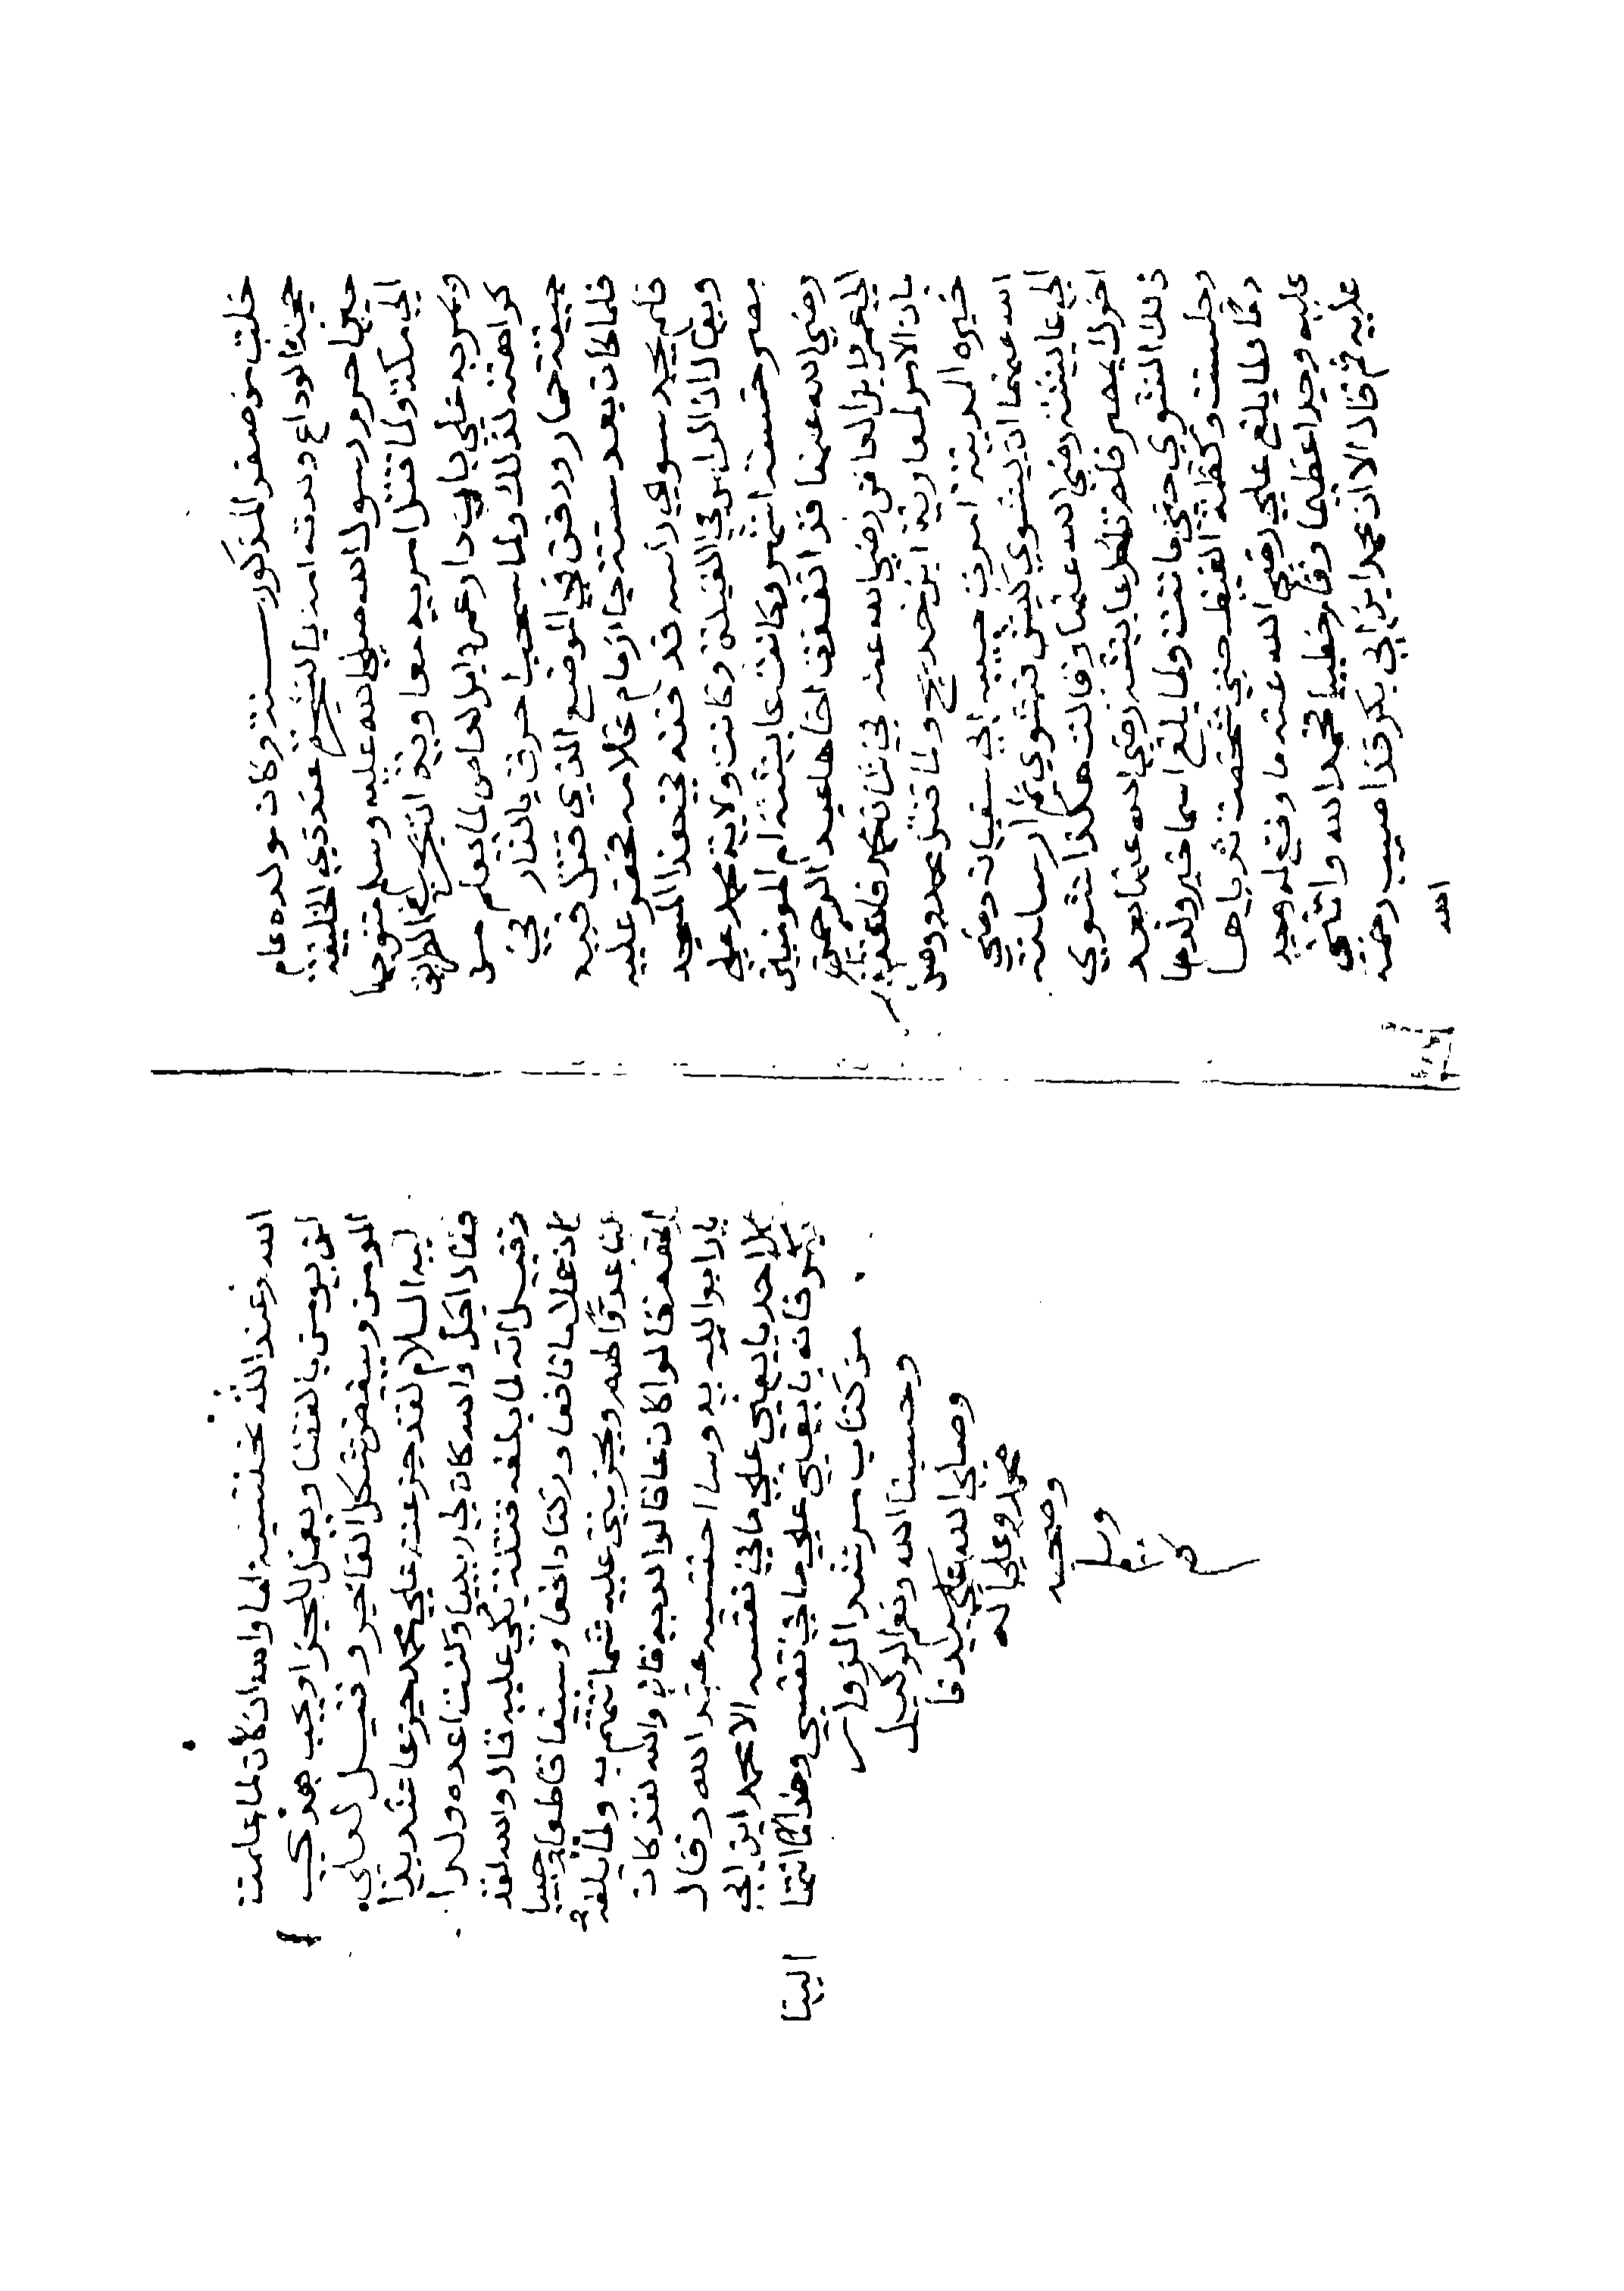 خلت من صفر المذكور سنة وكان مولده عام
حجة الوداع ولدته امه بالشجرة عند ذي الحليفة
حينما خرج رسول الله صلي الله عليه وسلم متوجها
الي مكة ولما قتل امر به معاوية
ومر به علي باب دار عمرو ابن العاص لما يعلم من
كراهته لذلك ولما سحب احرق بالنار في
جيفة حمار ودفن في الموضع الذي قتل فيه
فلما كان بعد سنة جا زمام غلامه فحفر عليه
فلم يجد سوي راسه قدفنه في هذا المسجد
ويقال ان الراس في القبلة وكانت ولاية محمد علي
مصر خمسة اشهر وكانت عايشة ام المومنين
رضي الله عنها قد انفذت اخاها عبد الرحمن
الي عمرو ابن العاص رضي الله عنه في شان محمد فاعتذر
بان الامر لمعاوية ابن خديج ولما قتل محمد ووصل
خبره المدينة امرت حبيبه ابي سفيان رضي
الله عنهما ان يشوي كبش فشوي ثم ارسلته
الي عايشة رضي الله عنها وقالت هكذا شوي
اخوك بمصر فلم تاكل عايشة رضي الله عنها بعد
ذلك الشوي حتي ماتت ولما بلغ اسما خبر ولدها
وجلست وكظمة الغيظ حتي شخبت ثدياها
دما ولما بلغ علي رضي الله عنه ما وقع له وجد
عليه وجدا عظيما وقام خطيبا فحمد الله واثني
عليه ثم قال الا ان محمد ابن ابي بكر قد اصيب رحمه
الله
الله وعند الله نحتسبه اما والله ان كان لما علمت
لمن يومن بالقضا ويعمل للجزا ويحب هدي
المومن ويبغض شكل الفاجر وقيل لعلي
عليه السلام لقد جزعت علي محمد جزعا شديدا
فقال اجل والله كان لي ربيبا وكنت اعده ولدا
وقيل انه لما بلغه قتله بكي عليه قال والله لقد
كان غلاما نافعا وركنا دافعا وسيفا قاطعا وحبيبا
لنا عدوا لهم ويحزنني عليه شماتتهم به ولما بلغ
قالوا كان عاقا لوالديه قال والله لقد كان
بارا بوالديه وما احتسبه عند الله وقال
ما احد بايعني علي ما في نفسه الا محمد ابن ابي
بكر فانه بايعني علي ما في نفسي وهذا ما انتهي
الينا
من كتاب مرشد الزوار
وحسبنا الله ونعم الوكيل
وصلي الله علي سيدنا
محمد وعلي اله
وصحبه
وسلم